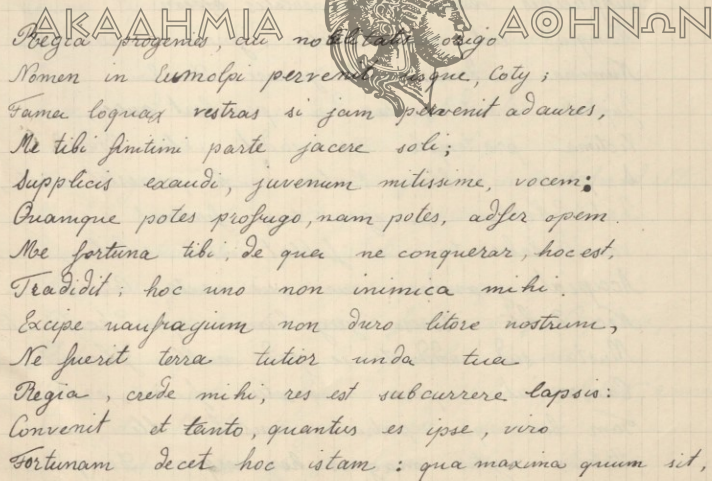 ΑΚΑΔΗΜΙΑ ΑΘΗΝΩΝ
Regia progenies, cui nobilitatis origo
Nomen in Eumolpi pervenit usque, Coty;
Fama loquax vestras si jam pervenit ad aures,
Me tibi finitimi parte jacere soli;
Supplicis exaudi, juvenum mitissime, vocem:
Quamque potes profugo, nam potes, adfer opem.
Me fortuna tibi, de qua ne conquerar, hoc est,
Tradidit; hoc uno non inimica mihi.
Excipe naufragium non duro litore nostrum,
Ne fuerit terra tutior unda tua
Regia, crede mihi, res est subcurrere lapsis:
Convenit et tanto, quantus es ipse, viro
Fortunam decet hoc istam: qua maxima quum sit,